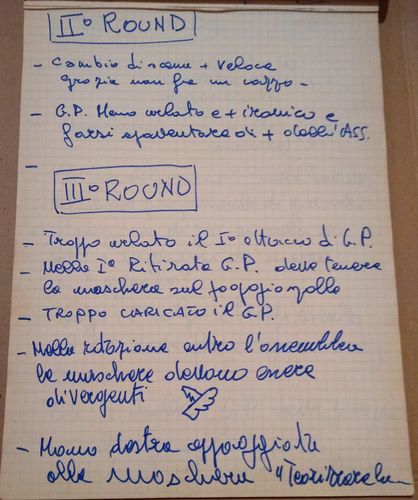 II° ROUND
- Cambio di scena + veloce
grazia non fa un cazzo -
- G.P. Meno urlato e + ironico e
farsi spaventare di + dall'ASS.
-
III° ROUND
- Troppo urlato il I° attacco di G.P.
- Nella I° Ritirata G.P. deve tenere
la maschera sul
- TROPPO CARICATO il G.P.
- Nella rotazione entro l'assemblea
le maschere devono essere
divergenti
- Mano destra appoggiata
alla maschera